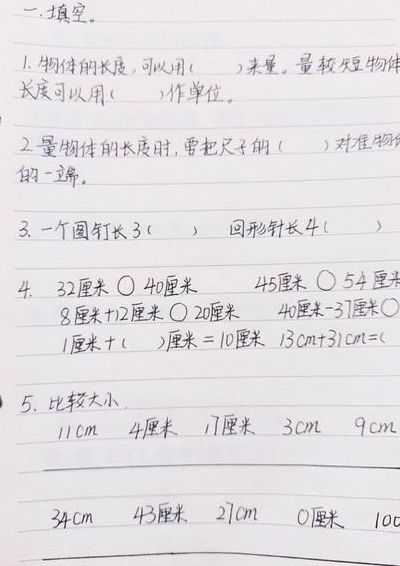 一.填空。
1.物体的长度,可以用( )来量。量较短物体
长度可以用( )作单位。
2.量物体的长度时,要把尺子的( )对准物
的一端。
3.一个图钉长3( ) 回形针长4( )
4. 32厘米 ○ 40厘米 45厘米 ○ 54厘米
8厘米+12厘米 ○ 20厘米 40厘米-37厘米 ○
1厘米+( )厘米=10厘米 13cm+31cm=(
5. 比较大小.
11cm 4厘米 17厘米 3cm 9cm
34cm 43厘米 27cm 0厘米 100